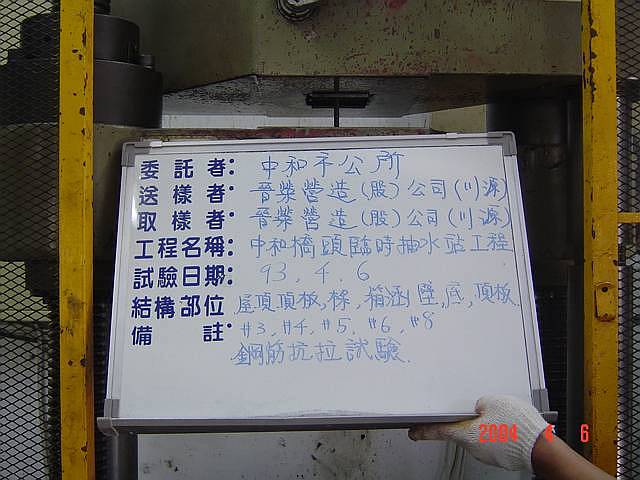 委託者: 中和市公所
送樣者: 晉榮營造(股)公司(川源)
取樣者: 晉榮營造(股)公司(川源)
工程名稱: 中和橋頭臨時抽水站工程
試驗日期: 93.4.6
結構部位 屋頂頂板,樑,箱涵,壁,底,頂板.
備註: #3,#4,#5,#6,#8
鋼筋抗拉試驗.
2004 4 6